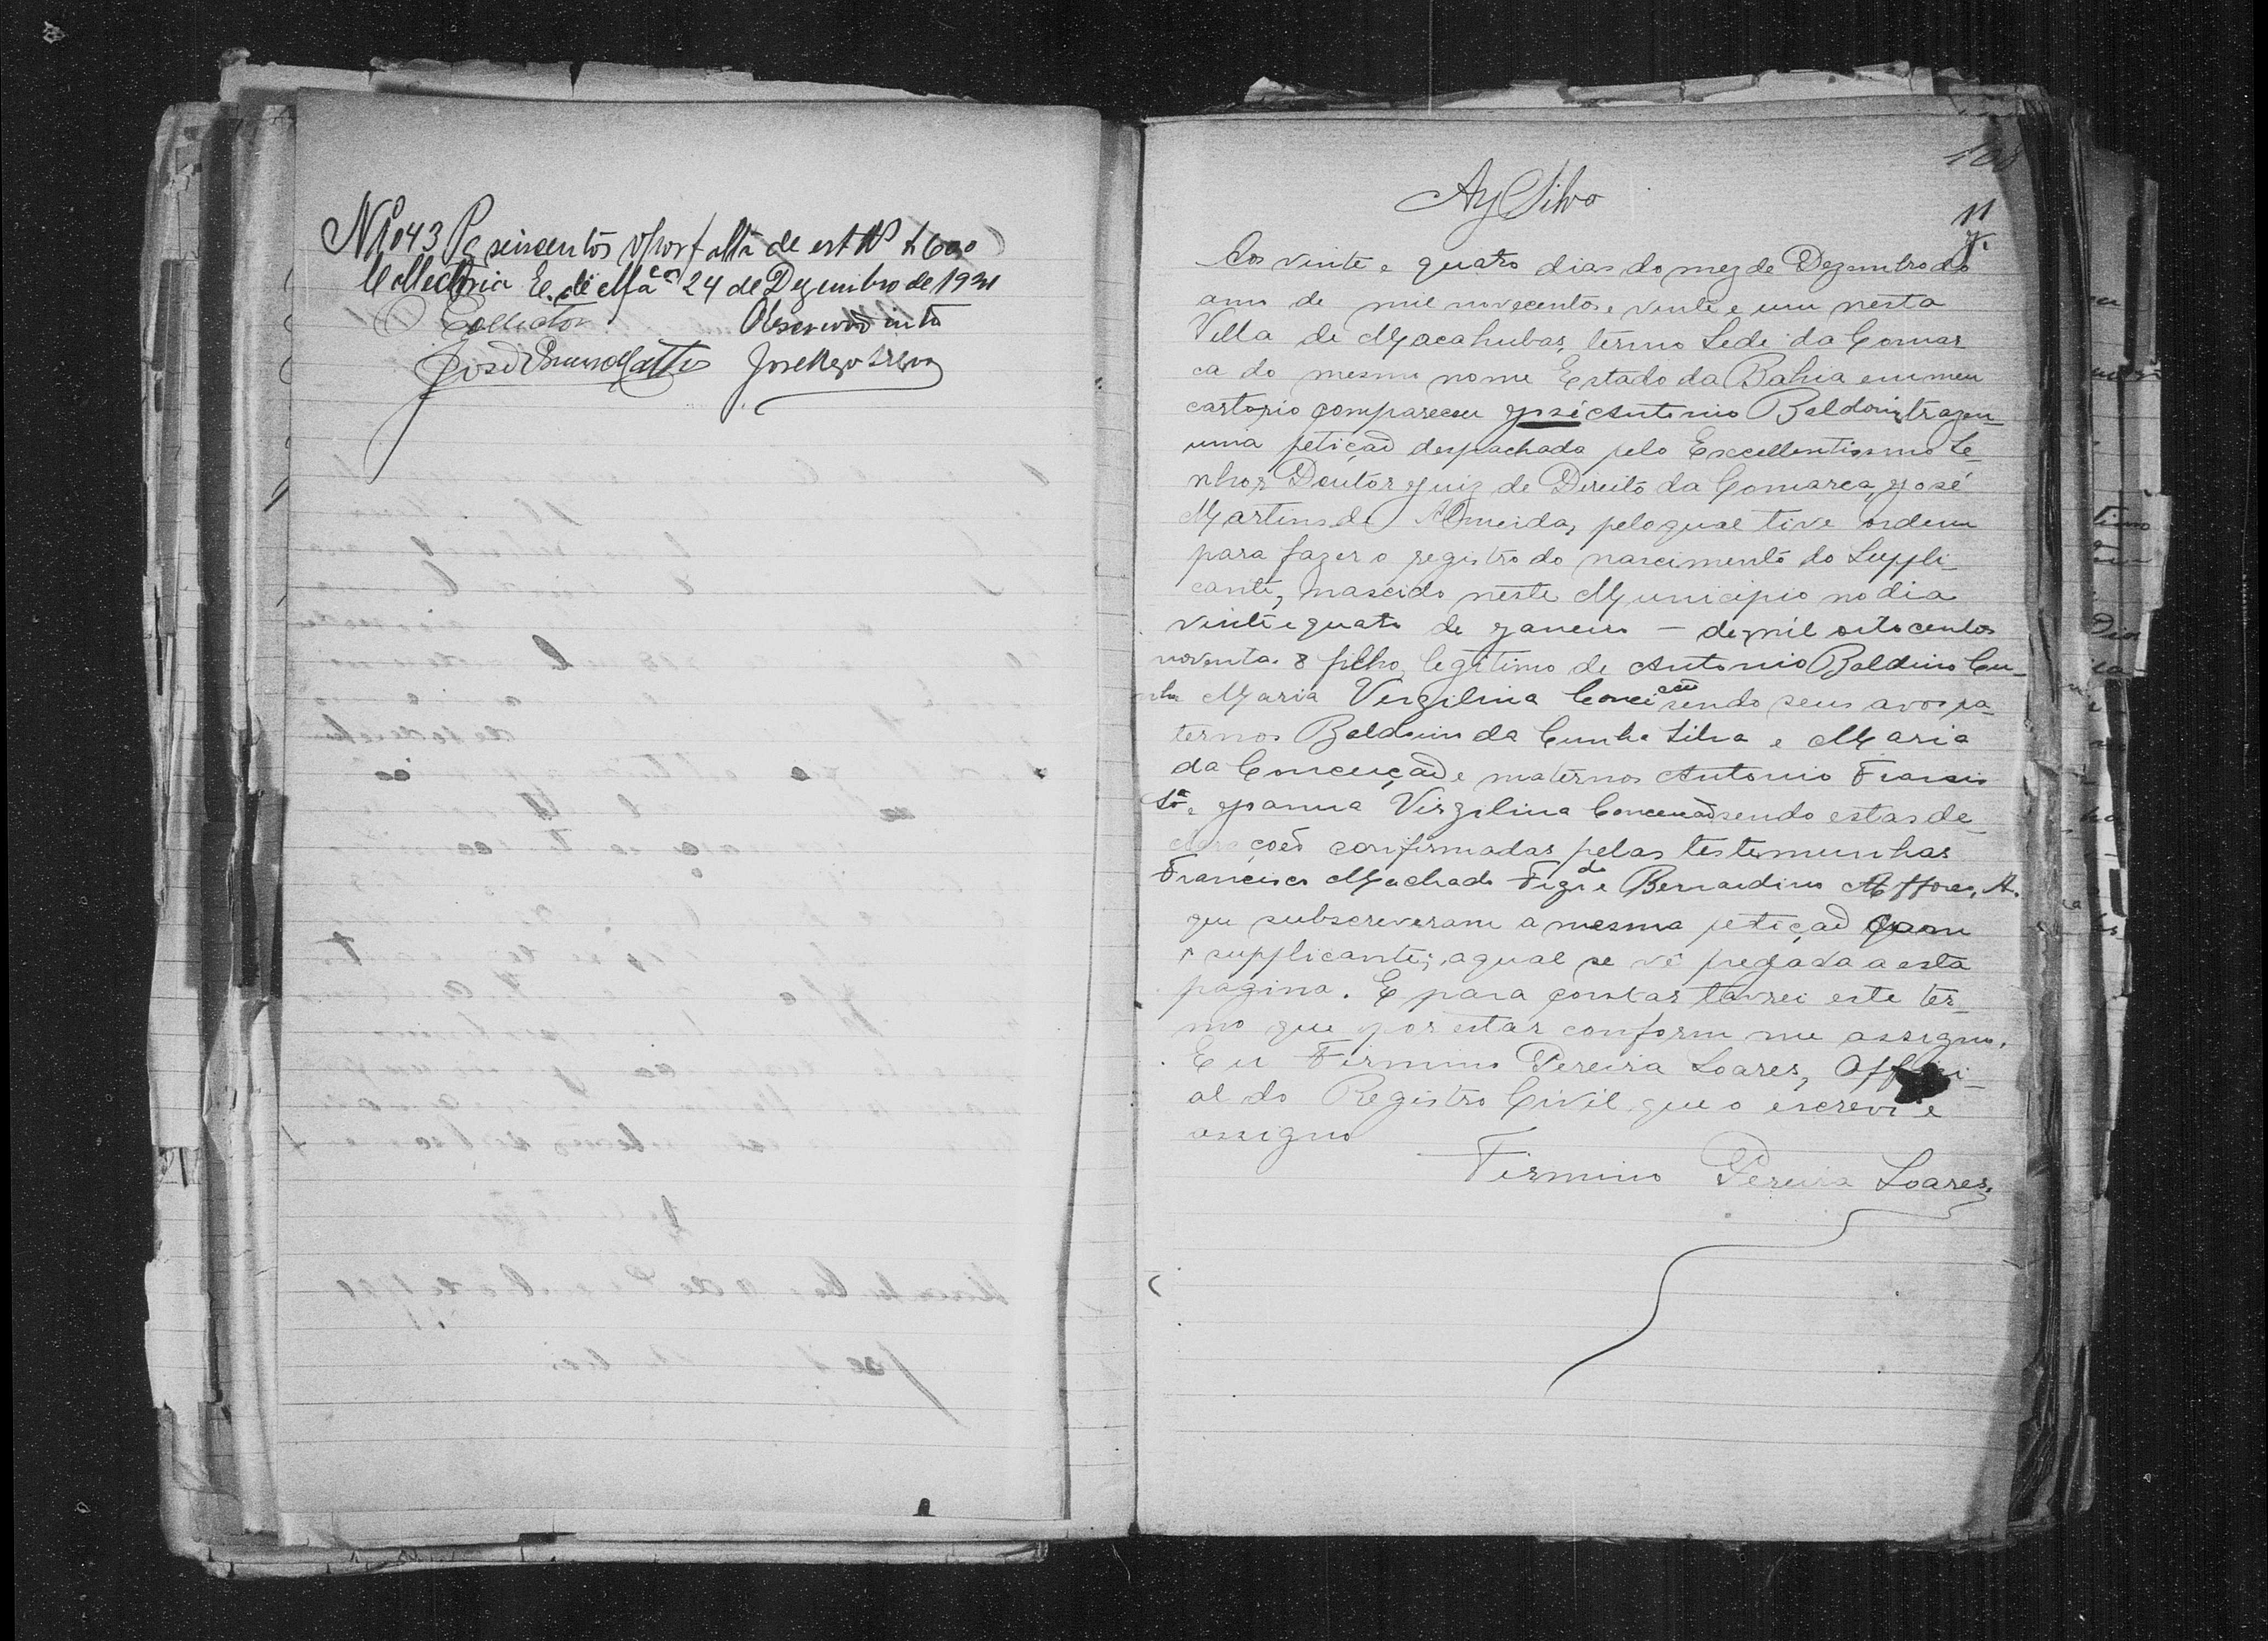 Nº 1043 Pg seiscentos rs por falta de est Rs $600
Collectoria E. de Mac.as 24 de Dezembro de 1921
O Collector
José
108
Ay Silva
11
Aos vinte e quatro dias do mez de Dezembro do
anno de mil novecentos e vinte e um nesta
Villa de Macahubas, termo Sede da Comar
ca do mesmo nome Estado da Bahia em meu
cartorio compareceu José Antonio Baldoino, trazen
uma petição despachada pelo Excellentissimo Se-
nhor Doutor Juiz de Direito da Comarca, José
Martins de Almeida, pelo qual tive ordem
para fazer o registro do nascimento do Suppli-
cante, nascido neste Municipio no dia
vinte e quatro de Janeiro — de mil oitocentos
noventa. 8 filho legitimo de Antonio Baldino Cu-
nha Maria Virgilina Conceiação sendo seus avos pa-
ternos Baldoino da Cunha Silva e Maria
da Conceição e maternos Antonio Francis
e Joanna Virgilina Conceição sendo estas de-
clarações confirmadas pelas testemunhas
Francisco Machado Figdo e Bernardino
que subscreveram a mesma petição com
o supplicante; a qual se vê pregada a esta
pagina. E para constar lavrei este ter
mo que por estar conforme me assigno.
Eu Firmino Pereira Soares, Offici-
al do Registro Civil que o escrevi e
assigno
Firmino Pereira Soares.